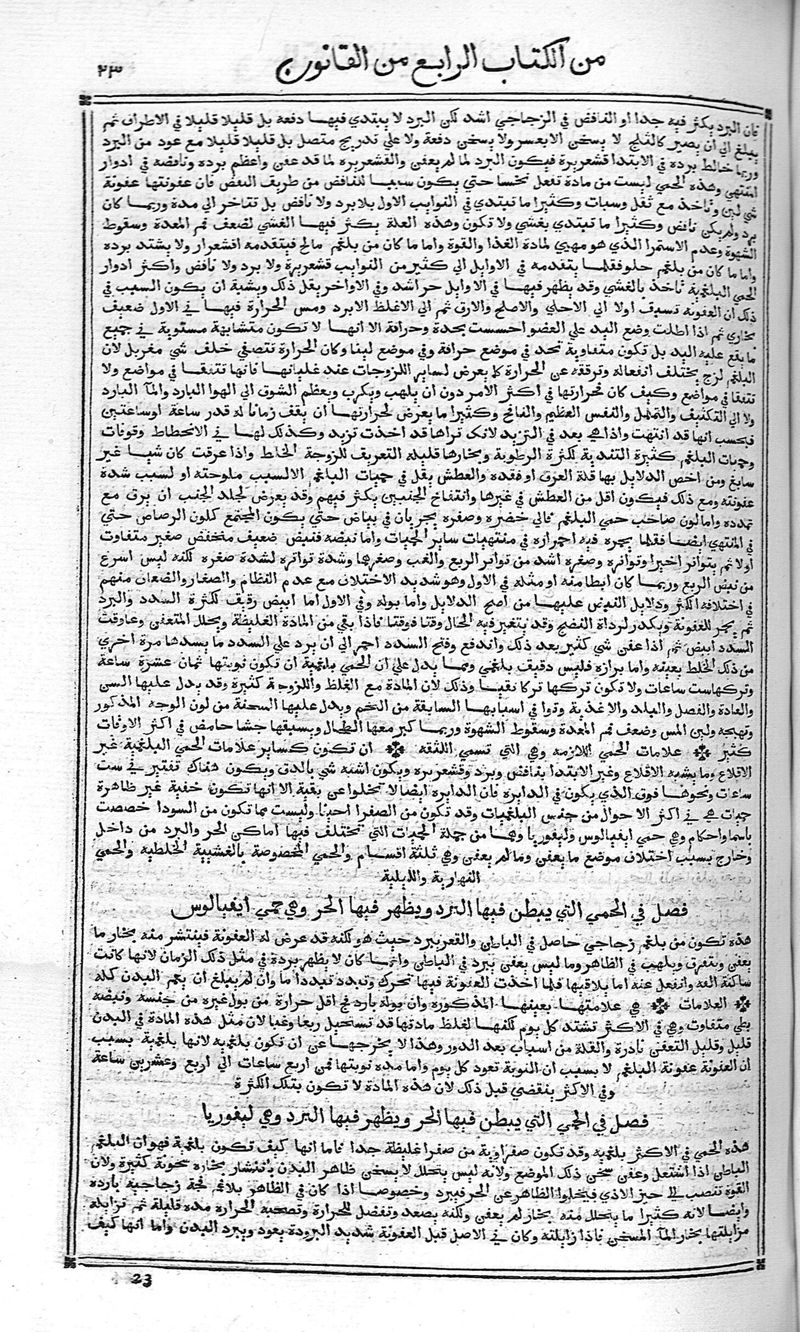 من الكتاب الرابع من القانون
٢٣
فان البرد يكثر فيه جدا او النافض في الزجاجي اشد لكن البرد لا يبتدي فيها دفعه بل قليلا قليلا في الاطراف ثم
يبلغ الي ان يصير كالثلج لا يسخن الا بعسر ولا يسخن دفعة ولا علي تدريج متصل بل قليلا قليلا مع عود من البرد
وربما خالط برده في الابتدا قشعريرة فيكون البرد لما لم يعفن والقشعريره لما قد عفن واعظم برده ونافضه في ادوار
المنتهي وهذه الحمي ليست من مادة تفعل نخسا حتي يكون سببا للنافض من طريف النفض فان عفونتها عفونة
شي لين وتاخذ مع ثقل وسبات وكثيرا ما تبتدي في النوايب الاول بلا برد ولا نافض بل تتاخر الي مدة وربما كان
برد ولم يكن نافض وكثيرا ما تبتدي بغشي ولا تكون وهذه العلة يكثر فيها الغشي لضعف فم المعدة وسقوط
الشهوة وعدم الاستمرا الذي هو مهيي لمادة الغذا والقوة واما ما كان من بلغم مالح فيتقدمه اقشعرار ولا يشتد برده
واما ما كان من بلغم حلو فقلما يتقدمه في الاوايل الي كثير من النوايب قشعريرة ولا برد ولا نافض واكثر ادوار
الحمي البلغمية تاخذ بالغشي وقد يظهر فيها في الاوايل حر اشد وفي الاواخر يقل ذلك ويشبه ان يكون السبب في
ذلك ان العفونه تسبق اولا الي الاحلي والاصلح والارق ثم الي الاغلظ الابرد ومس الحرارة فيها في الاول ضعيف
بخاري ثم اذا اطلت وضع اليد علي العضو احسست بحدة وحرافة الا انها لا تكون متشابهة مستوية في جميع
ما يقع عليه اليد بل تكون متفاوتة تحد في موضع حرافة وفي موضع لينا وكان الحرارة تتصفي خلف شي مغربل لان
البلغم لزج يختلف انفعاله وترققه عن الحرارة كما يعرض لساير اللزوجات عند غليانها فانها تتفقا في مواضع ولا
تتفقا في مواضع وكيف كان فحرارتها في اكثر الامر دون ان يلهب ويكرب ويعظم الشوق الي الهوا البارد والما البارد
ولا الي التكشيف والتململ والنفس العظيم والنفخ وكثيرا ما يعرض لحرارتها ان يقف زمانا له قدر ساعة او ساعتين
فيحسب انها قد انتهت واذا هي بعد في التزيد لانك تراها قد اخذت تزيد وكذلك لها في الانحطاط وقوفات
وحميات البلغم كثيرة التندية لكثرة الرطوبة وبخارها قليله التعريف للزوجة الخلط واذا عرقت كان شيا غير
سابغ ومن اخص الدلايل بها قلة العرق او فقده والعطش يقل في حميات البلغم الا لسبب ملوحته او لسبب شدة
عفونته ومع ذلك فيكون اقل من العطش في غيرها وانتفاخ الجنبين يكثر فيهم وقد يعرض لجلد الجنب ان يرق مع
تمدده واما لون صاحب حمي البلغم فالي خضره وصفره يجريان في بياض حتي يكون المجتمع كلون الرصاص حتي
في المنتهي ايضا فقلما يحمر فيه احمراره في منتهيات ساير الحميات واما نبضه فنبض ضعيف منخفض صغير متفاوت
اولا ثم يتواتر اخيرا وتواتره وصغره اشد من تواتر الربع والغب وصغرها وشدة تواتره لشدة صغره لكنه ليس اسرع
من نبض الربع وربما كان ابطا منه او مثله في الاول وهو شديد الاختلاف مع عدم النظام والصغار والضعاف منهم
في اختلافه اكثر ودلايل النبض عليها من اصح الدلايل واما بوله وفي الاول اما ابيض رقيق لكثرة السدد والبرد
ثم يحمر للعفونة ويكدر لرداة النضج وقد يتغير فيه الحال وقتا فوقتا فاذا بقي من المادة الغليظة ويحلل المتعفن وعاوقت
السدد ابيض ثم اذا عفن شي كثير بعد ذلك واندفع وفتح السدد احمر الي ان يرد علي السدد ما يسدها مرة اخري
من ذلك الخلط بعينه واما برازه فلين دقيق بلغمي ومما يدل علي ان الحمي بلغمية ان تكون نوبتها ثمان عشرة ساعة
وتركهاست ساعات ولا تكون تركها تركا نقيا وذلك لان المادة مع الغلظ واللزوجة كثيرة وقد يدل عليها السن
والعادة والفصل والبلد والاغذية وتوا في اسبابها السابقة من التخم ويدل عليها السحنة من لون الوجه المذكور
وتهيجه ولين المس وضعف فم المعدة وسقوط الشهوة وربما كبر معها الطحال ويسبقها جشا حامض في اكثر الاوقات
كثير ✤ علامات الحمي اللازمه وهي التي تسمي اللثقه ✤ ان تكون كساير علامات الحمي البلغمية غير
الاقلاع وما يشبه الاقلاع وغير الابتدا بنافض وبرد وقشعريره ويكون اشبه شي بالدق ويكون هناك تفتير في ست
ساعات ونحوها فوق الذي يكون في الدايره فان الدايره ايضا لا تخلوا عن بقية الا انها تكون خفية غير ظاهرة
حميات هي في اكثر الاحوال من جنس البلغميات وقد تكون من الصفرا احيانا وليست مما تكون من السودا خصصت
باسما واحكام وهي حمي ايفيالوس وليفوريا وهما من جملة الحميات التي تختلف فيها اماكن الحر والبرد من داخل
وخارج بسبب اختلاف موضع ما يعفن وما لم يعفن وهي ثلثة اقسام والحمي المخصوصة بالغشيية الخلطيه والحمي
النهارية والليلية
فصل في الحمي التي يبطن فيها البرد ويظهر فيها الحر وهي حمي ايفيالوس
هذه تكون من بلغم زجاجي حاصل في الباطن والقعر يبرد حيث هو لكنه قد عرض له العفونة فينتشر منه بخار ما
يعفن ويتفرق ويلهب في الظاهر وما ليس بعفن يبرد في الباطن وانما كان لا يظهر بردة في مثل ذلك الزمان لانها كانت
ساكنة الفه وانفعل عنه اما يلاقيها فلما اخذت العفونة فيها تحرك وتبدد تبددا ما وان لم يبلغ ان يعم البدن كله
✤ العلامات ✤ هي علامتها بعينها المذكورة وان بوله بارد فج اقل حرارة من بول غيره من جنسه ونبضه
بطي متفاوت وهي في الاكثر تشتد كل يوم لكنها لغلظ مادتها قد تستحيل ربعا وغبا لان مثل هذه المادة في البدن
قليل وقليل التعفن نادرة والقلة من اسباب بعد الدور وهذا لا يخرجها عن ان تكون بلغمية لانها بلغمية بسبب
ان العفونة عفونة البلغم لا بسبب ان النوبة تعود كل يوم واما مده نوبتها فمن اربع ساعات الي اربع وعشرين ساعة
وفي الاكثر ينقضي قبل ذلك لان هذه المادة لا تكون بتلك الكثرة
فصل في الحمي التي يبطن فيها الحر ويظهر فيها البرد وهي ليفوريا
هذه الحمي في الاكثر بلغميه وقد تكون صفراوية من صفرا غليظة جدا فاما انها كيف تكون بلغمية فهو ان البلغم
الباطن اذا اشتعل وعفن سخن ذلك الموضع ولانه ليس يتحلل لا يسخن ظاهر البدن بانتشار بخاره سخونة كثيرة ولان
القوة تنصب الي حيز الاذي فيخلوا الظاهر عن الحر فيبرد وخصوصا اذا كان في الظاهر بلاغم فجة زجاجيه بارده
وايضا لانه كثيرا ما يتحلل منه بخار لم يعفن ولكنه يصعد وتفضل للحرارة وتصحبه الحرارة مده قليلة ثم تزايله
مزايلتها بخار الما المسخن فاذا زايلته وكان في الاصل قبل العفونة شديد البرودة يعود ويبرد البدن واما انها كيف
23